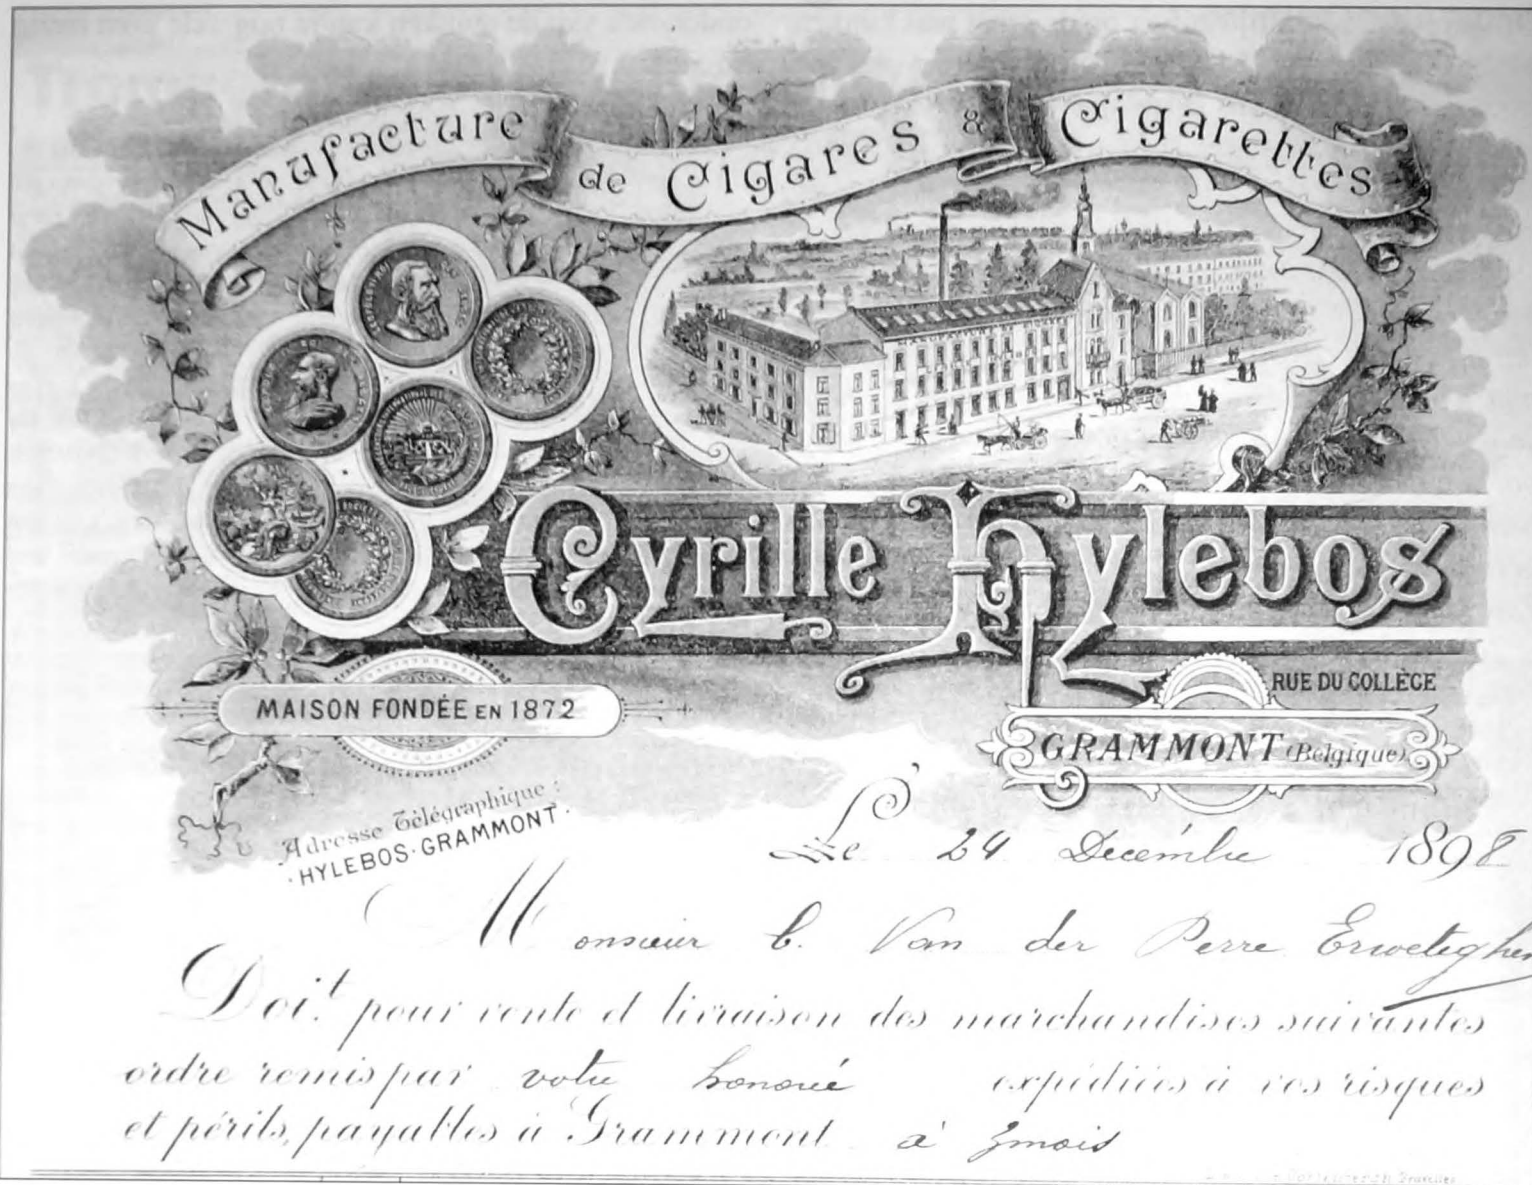 Manufacture de Cigares & Cigarettes
Cyrille Hylebos
MAISON FONDÉE EN 1872
RUE DU COLLÈGE
GRAMMONT (Belgique)
Adresse Télégraphique :
· HYLEBOS · GRAMMONT ·
Le 24 Decémbre 1898
Monsieur C. Van der Perre Erweteghem
Doi.t pour vente et livraison des marchandises suivantes
ordre remis par votre honoré expédiées à vos risques
et périls, payables à Grammont à 3 mois
Bruxelles